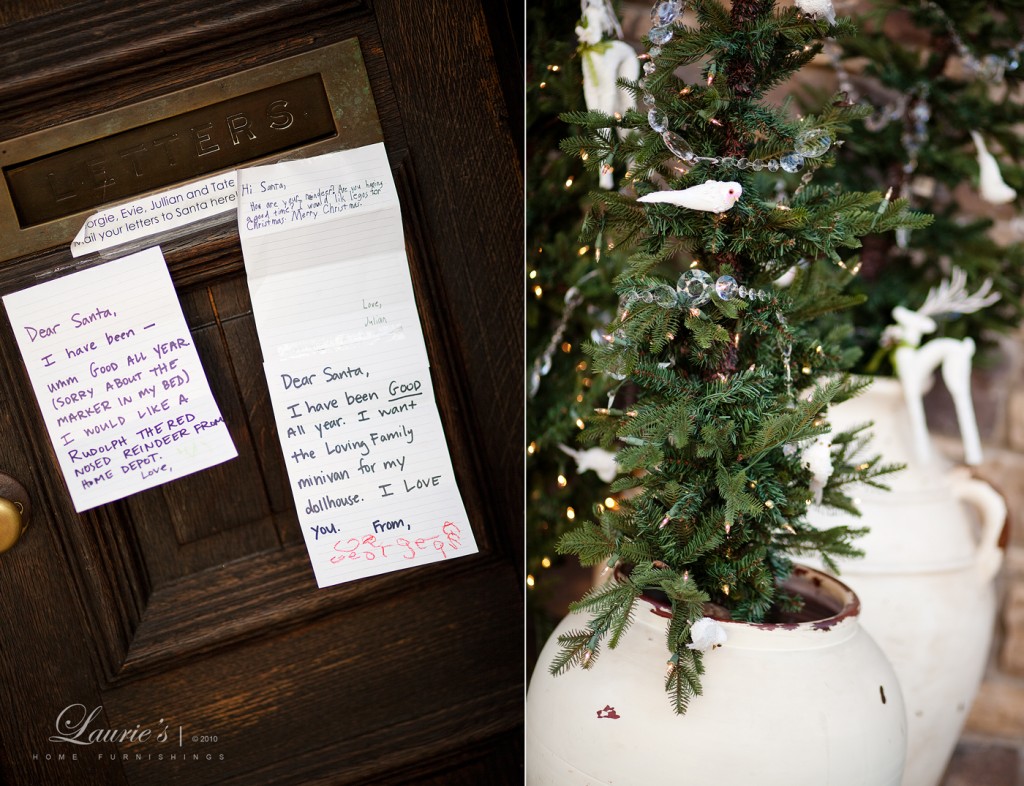 LETTERS
orgie, Evie, Jullian and Tate
Mail your letters to Santa here!
Hi Santa,
How are your reindeer? Are you having
a good time? I would like legos for
Christmas. Merry Christmas.
Love,
Julian
Dear Santa,
I have been —
umm GOOD ALL YEAR
(SORRY ABOUT THE
MARKER IN MY BED)
I WOULD LIKE A
RUDOLPH THE RED
NOSED REINDEER FROM
HOME DEPOT.
LOVE,
Dear Santa,
I have been GOOD
All year. I want
the Loving Family
minivan for my
dollhouse. I LOVE
you. From,
Laurie's | © 2010
HOME FURNISHINGS